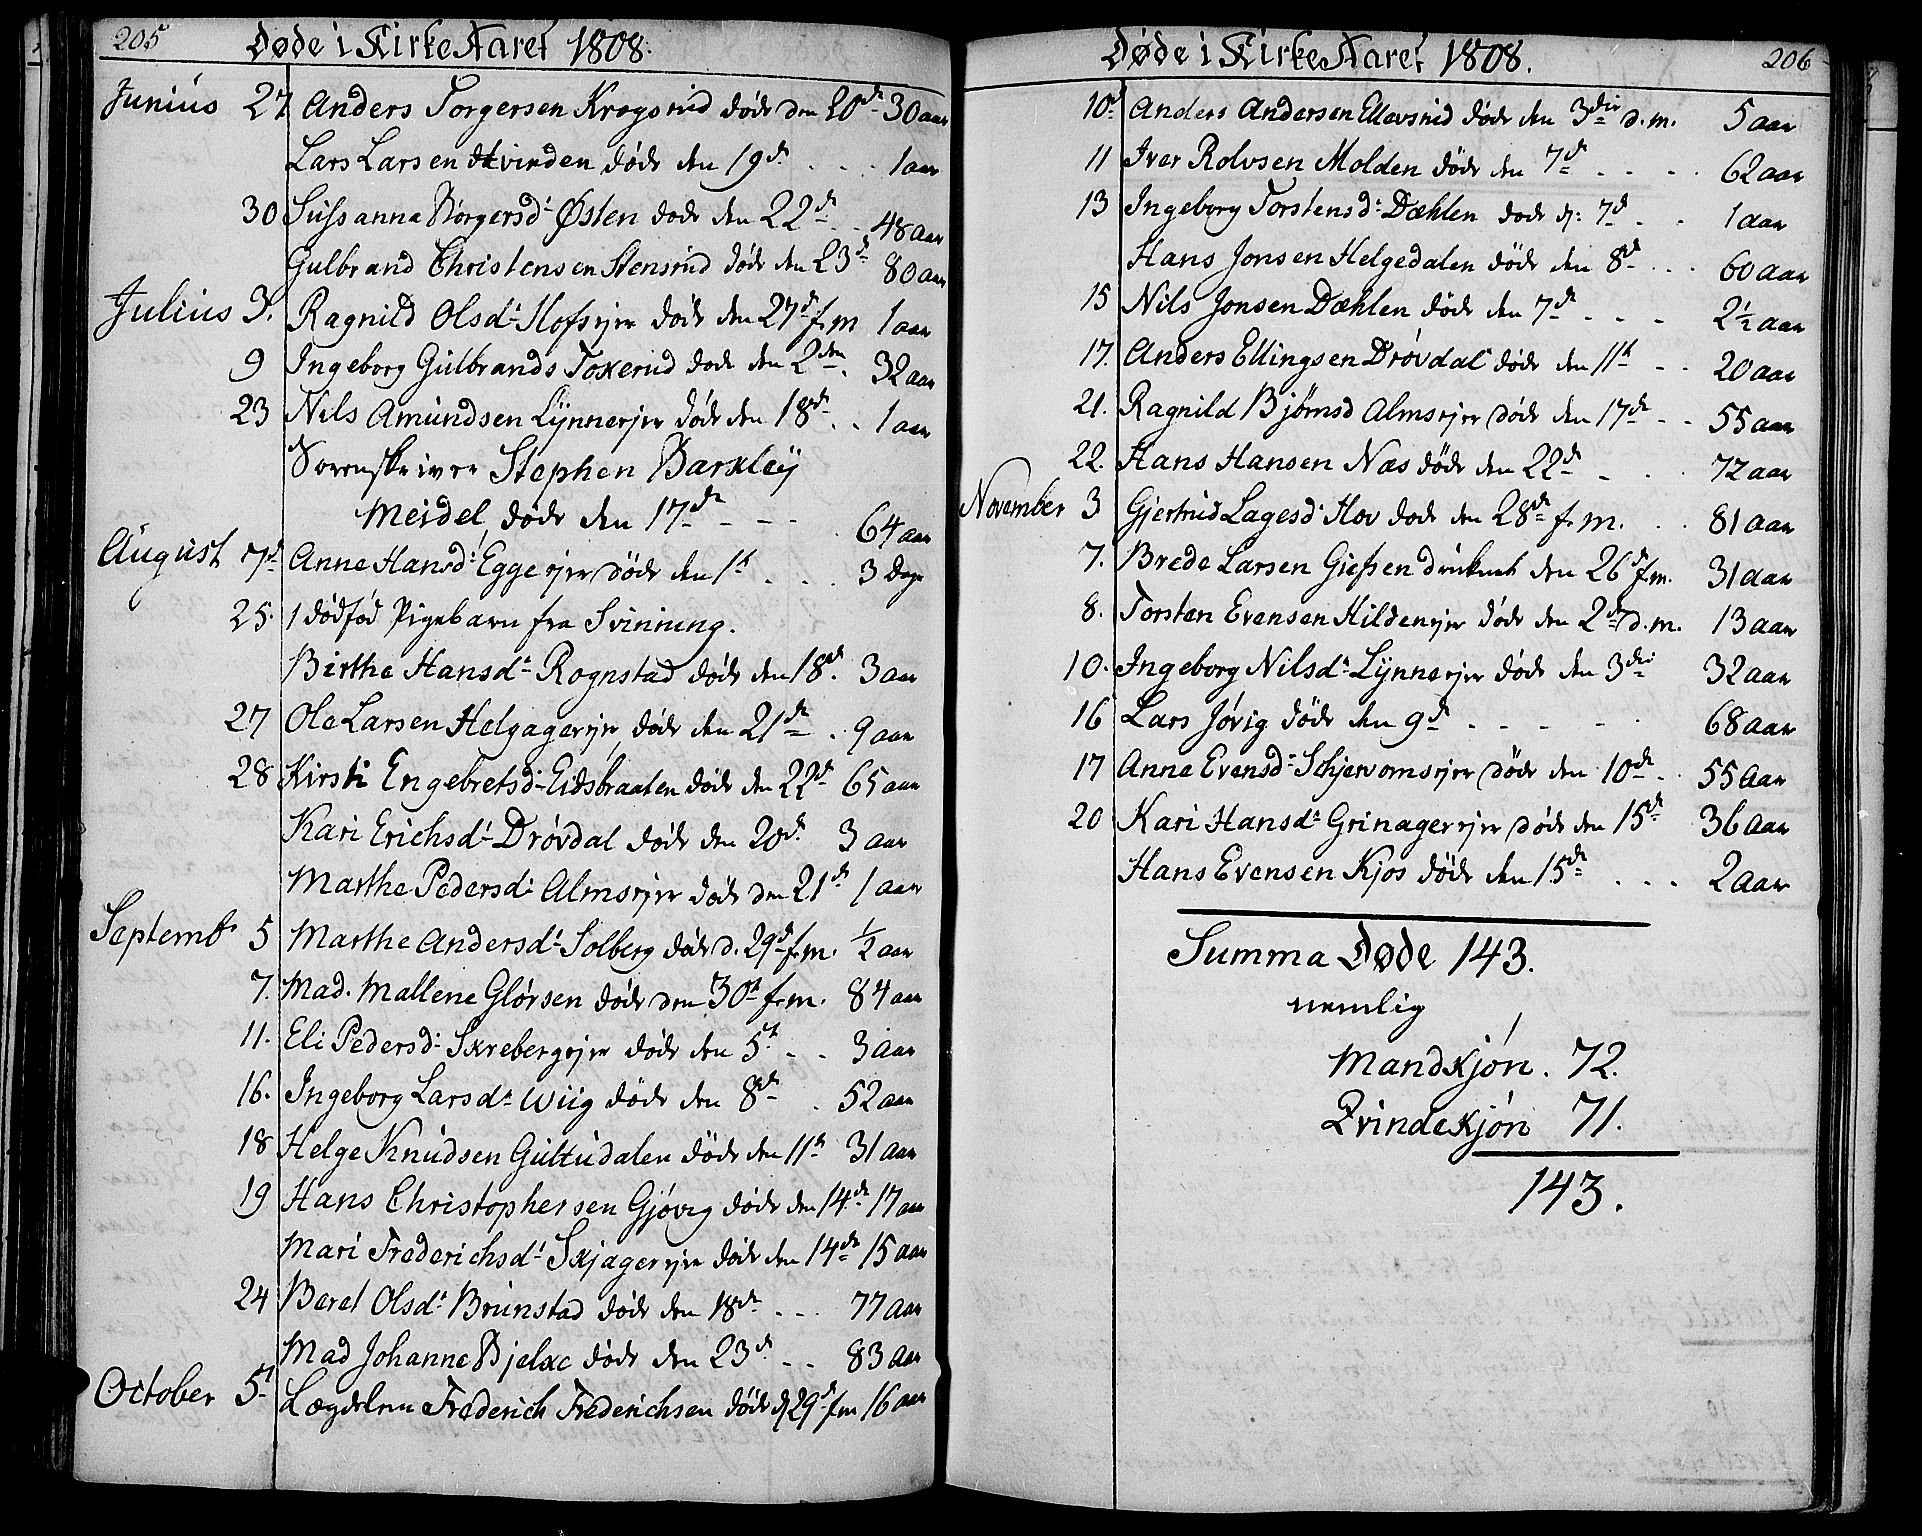 205 Døde i Kirke Aaret 1808.
Junius 27 Anders Torgersen Krogsrud døde den 20de 30 aar
Lars Larsen Hvinden døde den 19d . . . 1 aar
30 Sussanna Børgersd: Østen døde den 22d . . 48 aar
Gulbrand Christensen Stensrud døde den 23d 80 aar
Julius 3. Ragnild Olsd: Hofsejer døde den 27d f. m 1 aar
9 Ingeborg Gulbrands Toxerud døde den 2den . 32 aar
23 Nils Amundsen Lynneejer døde den 18de . . 1 aar
Sorenskriver Stephen Barxley
Meidel døde den 17de - - - 64 aar
August 7d Anne Hansd: Eggeejer døde den 1st . . . 3 Dage
25. 1 dødfød Pigebarn fra Svinning.
Birthe Hansd: Rognstad døde den 18de. 3 aar
27 Ole Larsen Helgagerejer døde den 21de . 9 aar
28 Kirsti Engebretsd: Eidsbraaten døde den 22de 65 aar
Kari Erichsd: Drøvdal døde den 20de. 3 aar
Marthe Pedersd: Almsejer døde den 21de 1 aar
Septembr 5 Marthe Andersd: Solberg døde d. 29d f. m. 1/2 aar
7. Mad. Mallene Glørsen døde den 30t f. m. 84 aar
11. Eli Pedersd: Skrebergejer døde den 5t - . 3 aar
16. Ingeborg Larsd: Wiig døde den 8de . 52 aar
18 Helge Knudsen Gultudalen døde den 11t 31 aar
19 Hans Christophersen Gjøvig døde den 14de 17 aar
Mari Frederichsd: Skjagerejer døde den 14de 15 aar
24 Beret Olsd: Brunstad døde den 18de - - - 77 aar
Mad Johanne Bjelke døde den 23d. - - 83 aar
October 5t Lægdslem Frederich Frederichsen døde d 29d f m 16 aar
Døde i Kirke Aaret 1808. 206
10d Anders Andersen Ellevsrud døde den 3die d. m. 5 aar
11 Iver Rolvsen Molden døde den 7de . . . . 62 aar
13 Ingeborg Torstensd: Dæhlen døde d: 7d - . 1 aar
Hans Jonsen Helgedalen döde den 8d . . . 60 aar
15 Nils Jonsen Dæhlen døde den 7de - - - 2 1/2 aar
17. Anders Ellingsen Drøvdal døde den 11t - . 20 aar
21. Ragnild Bjørnsd Almsejer døde den 17de - . 55 aar
22. Hans Hansen Næs døde den 22de - . 72 aar
November 3 Gjertrud Lagesd: Hov døde den 28de f. m. . . 81 aar
7. Brede Larsen Giefsen druknet den 26d f. m. 31 aar
8. Torsten Evensen Hildenejer døde den 2den d. m. 13 aar
10. Ingeborg Nilsd: Lynneejer døde den 3die 32 aar
16 Lars Jøvig döde den 9d - - - - . 68 aar
17 Anne Evensd: Schjervomsejer döde den 10de . . 55 Aar
20 Kari Hansd: Grinagerejer døde den 15de 36 Aar
Hans Evensen Kjos døde den 15de . . . 2 Aar
Summa Døde 143.
nemlig
Mandkjøn . 72.
Qvindekjøn 71.
143.